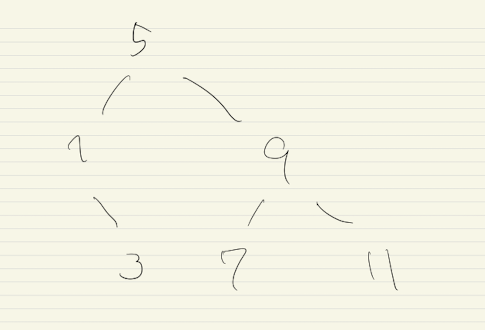 5
1 9
3 7 11